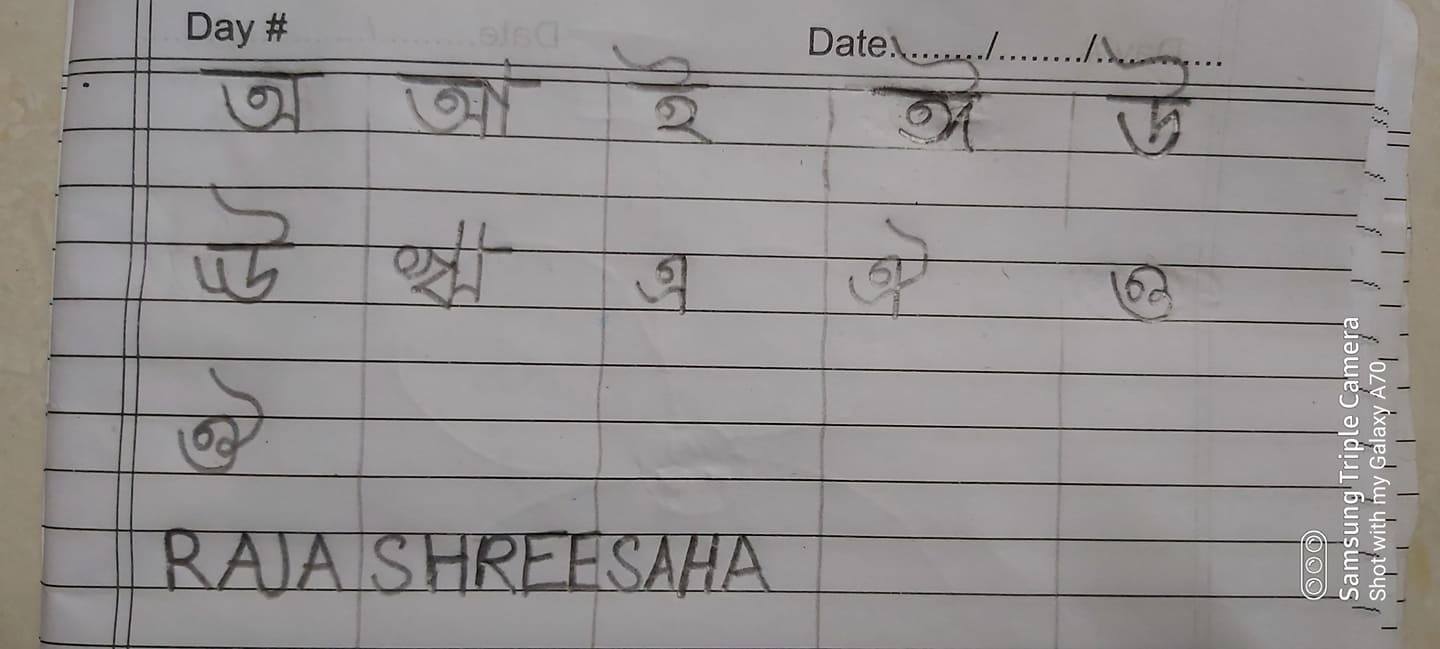 Day #
Date........./........./...........
অ আ ই ঈ উ
ঊ ঋ এ ঐ ও
ঔ
RAJA SHREE SAHA
Samsung Triple Camera
Shot with my Galaxy A70